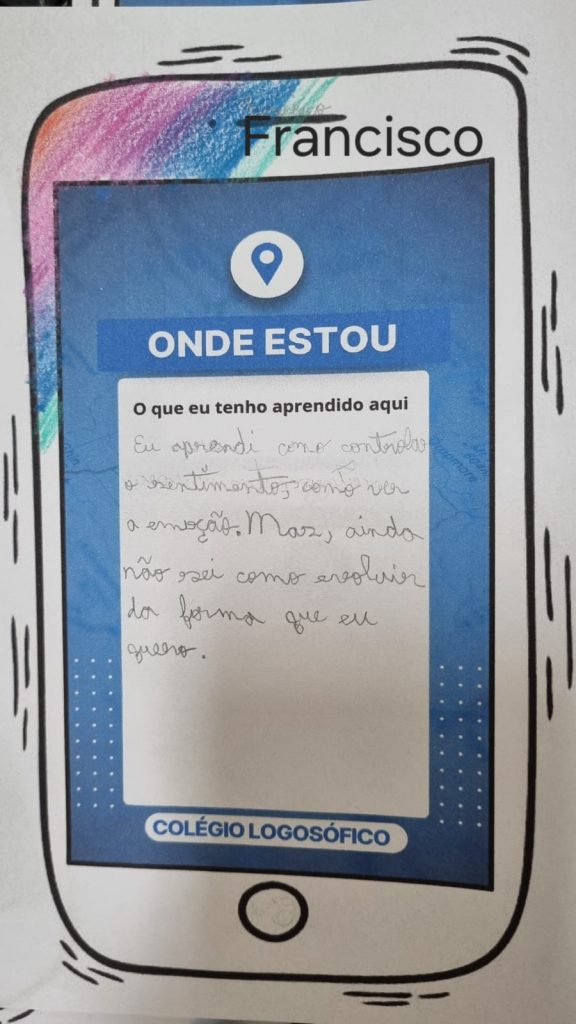 Francisco
ONDE ESTOU
O que eu tenho aprendido aqui
Eu aprendi como controlar
o sentimento, como ver
a emoção. Maz, ainda
não sei como evoluir
da forma que eu
quero.
COLÉGIO LOGOSÓFICO